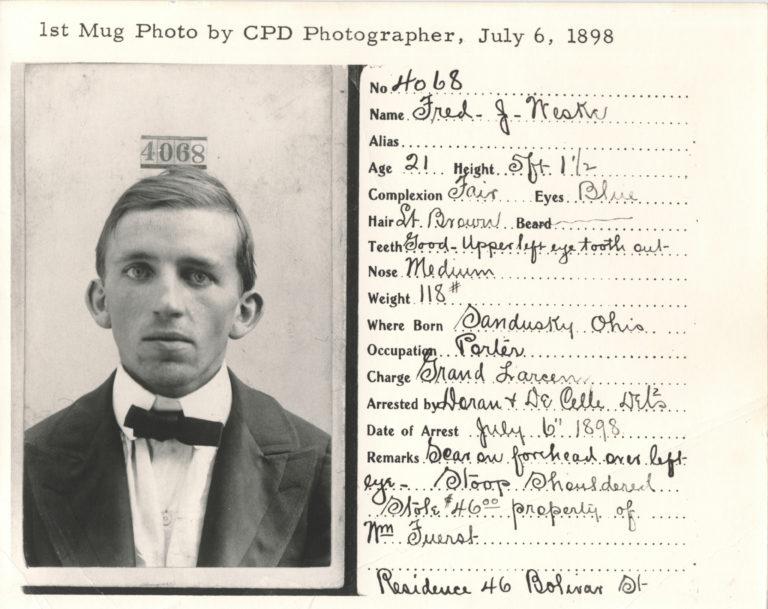 1st Mug Photo by CPD Photographer, July 6, 1898
4068
No 4068
Name Fred - J - Weske
Alias
Age 21 Height 5ft 1 1/2
Complexion Fair Eyes Blue
Hair Lt. Brown Beard
Teeth Good - Upper left eye tooth out -
Nose Medium
Weight 118#
Where Born Sandusky Ohio
Occupation Porter
Charge Grand Larceny
Arrested by Doran + De Celle Dets
Date of Arrest July 6" 1898
Remarks Scar on forehead over left
eye - Stoop Shouldered
Stole $46 00 property of
Wm Fuerst
Residence 46 Bolivar St